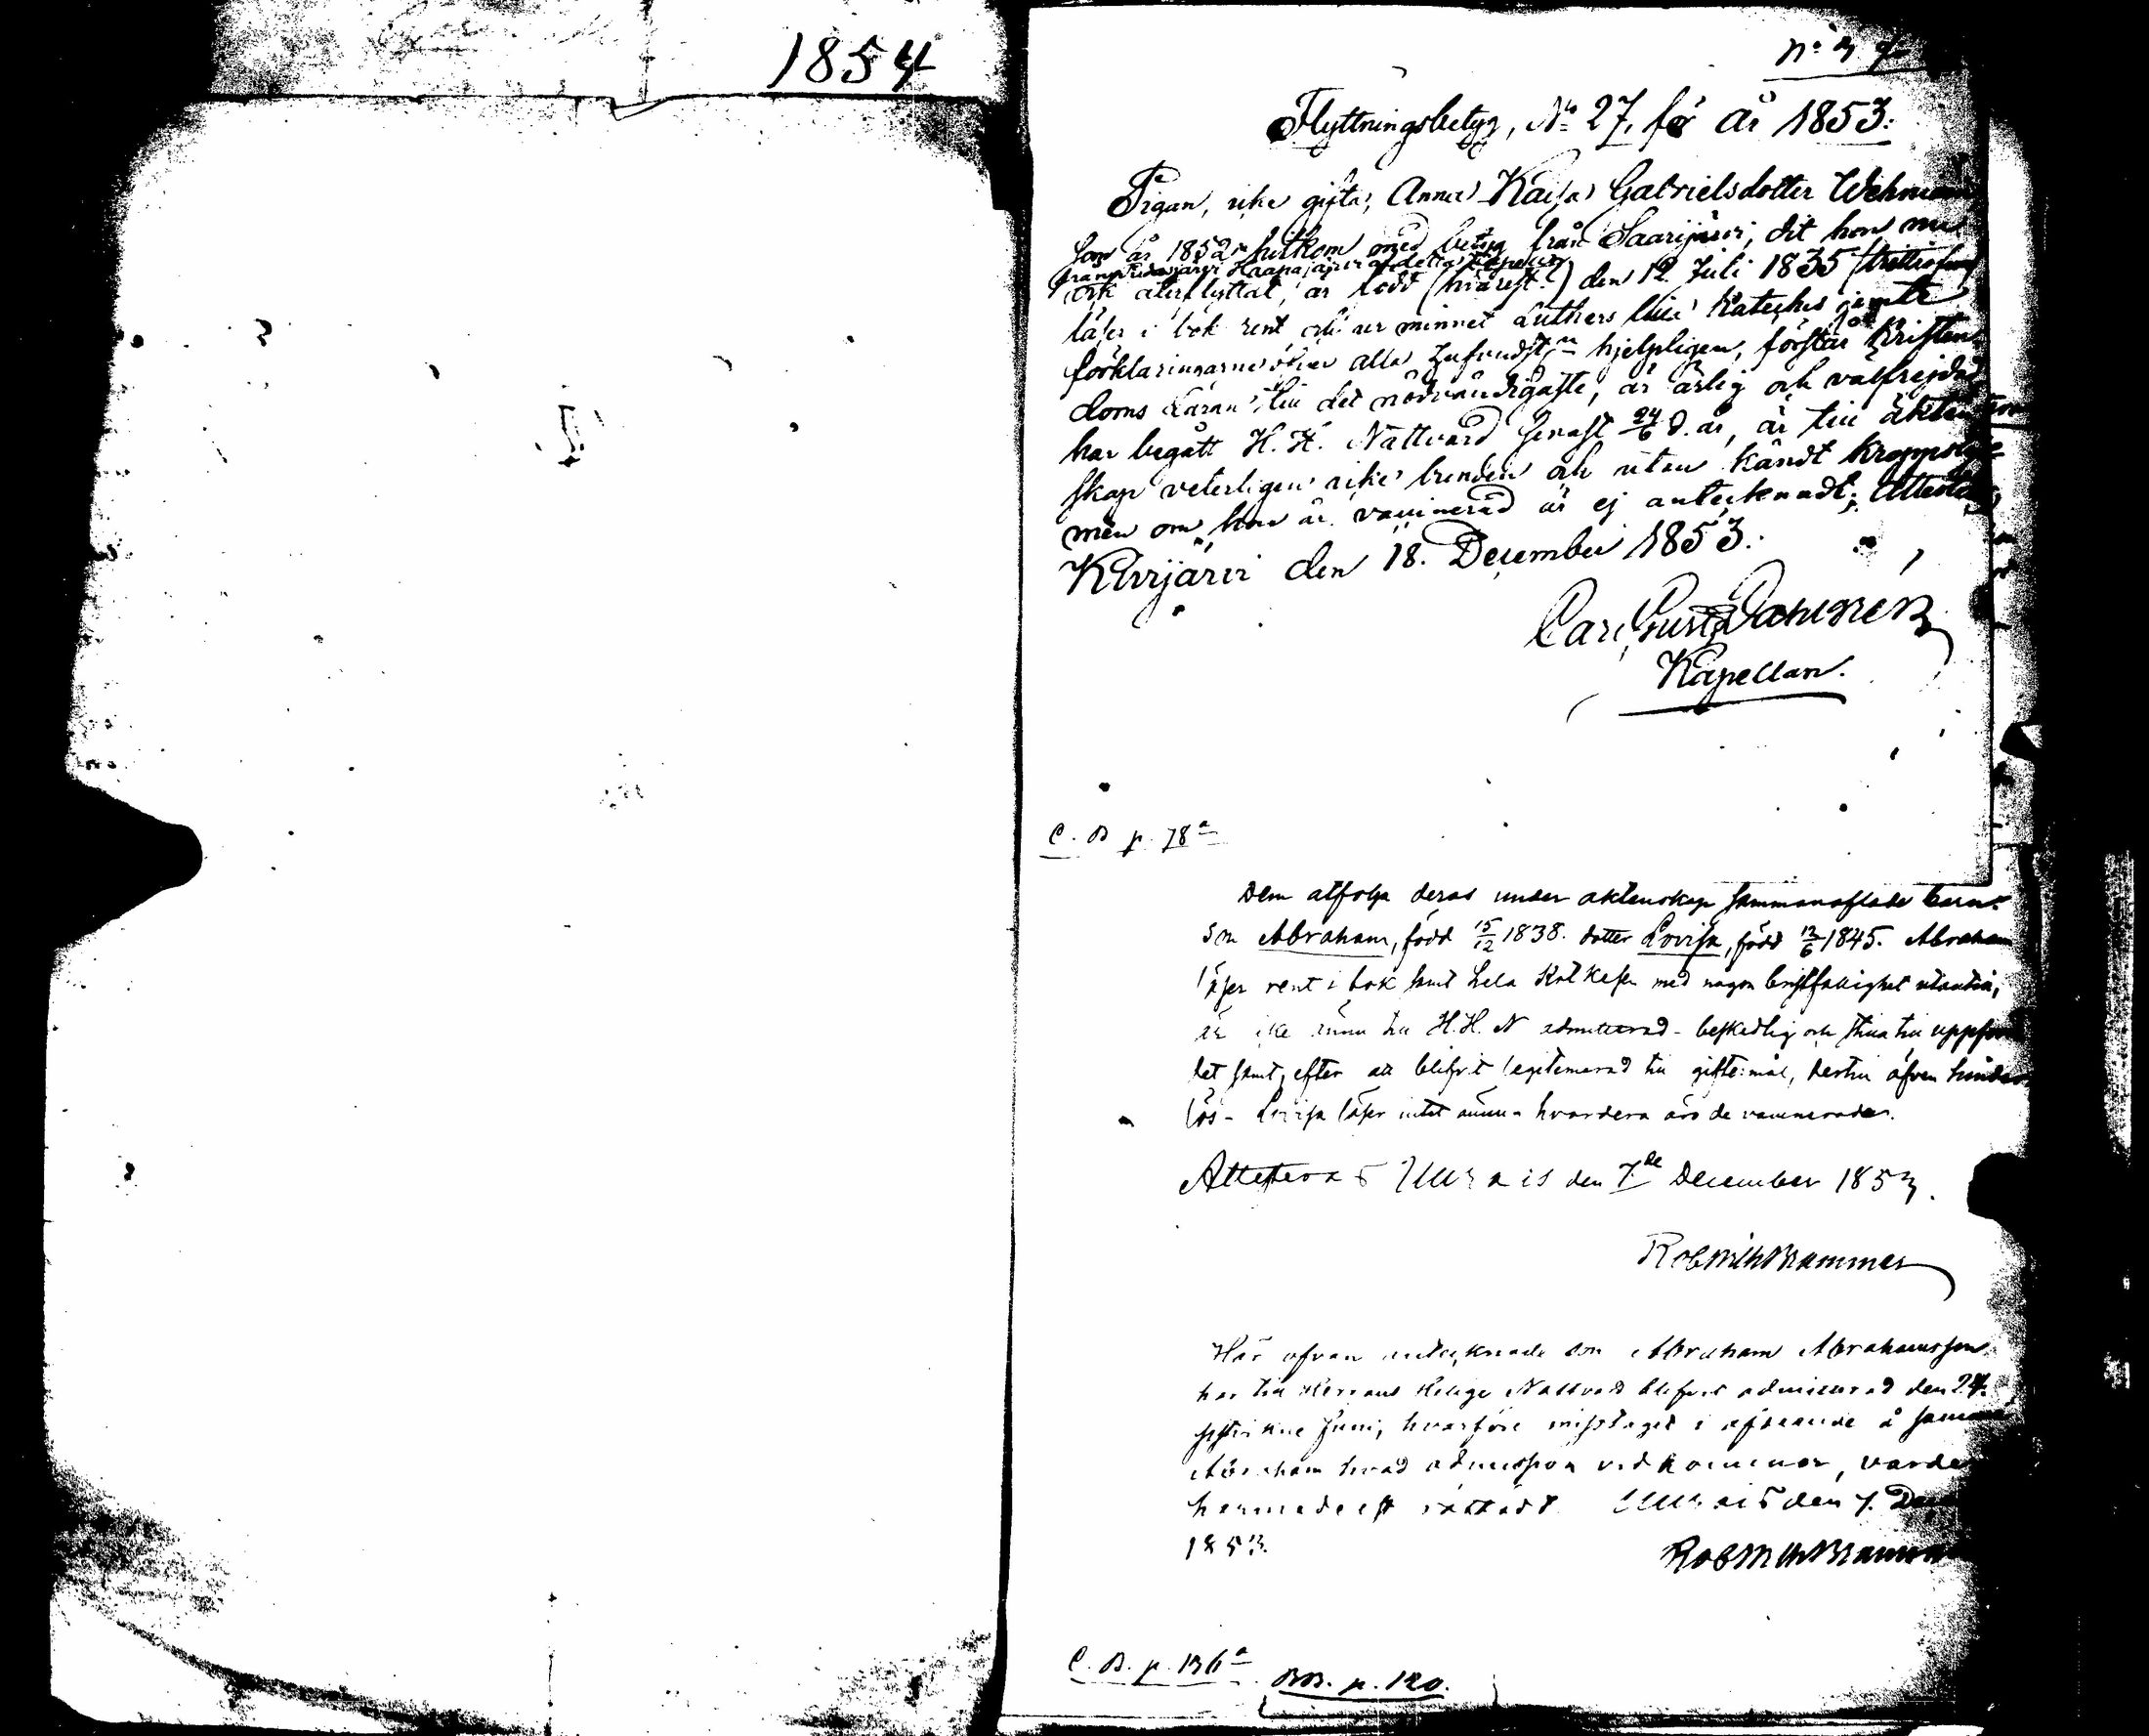 1854
Flyttningsbetyg, No 27. för år 1853.
Pigan, icke gifta, Anna Kaisa Gabrielsdotter
som år 1852 hitkom med betyg från Saarijärvi, dit hon nu
från
återflyttat, är född (hvarest?) den 12. Juli 1835
läser i bok rent och ur minnet Luthers lilla Kateches jemte
förklaringarne öfver alla hjelpligen, förstår Kristen-
doms Läran till det nödvändigaste, är ärlig och välfrejdad
har begått H. H. Nattvard senast 24/6 d. år, är till äkten-
skap veterligen icke bunden och utan kändt kroppslyte
men om hon är vaccinerad är ej antecknadt; Attesterar
Kivijärvi den 18. December 1853.
Carl Gust.
Kapellan.
C. B p. 78a
Dem åtfölja deras under äktenskap sammanaflade barn:
son Abraham, född 15/12 1838. dotter Lovisa, född 12/6 1845. Abraham
läser rent i bok samt hela Katkesen med någon bristfällighet utantill,
är icke ännu till H. H. N admitterad - beskedlig och stilla till uppföran
det samt, efter att blifvit legitimerad till giftermål, dertill äfven hinder
lös - Lovisa läser intet ännu - hvardera äro de vaccinerade.
Attesteras den 7de December 1853.
Här ofvan antecknade son Abraham Abrahamsson
har till Herrans Heliga Nattvard blifvit admitterad den 24.
sistlidne Juni, hvarföre misstaget i afseende å samma
Abraham hvad admission vedkommer, varder
härmedelst rättadt. den 7. Dec
1853.
C. B. p. 136a
BB. p. 120.